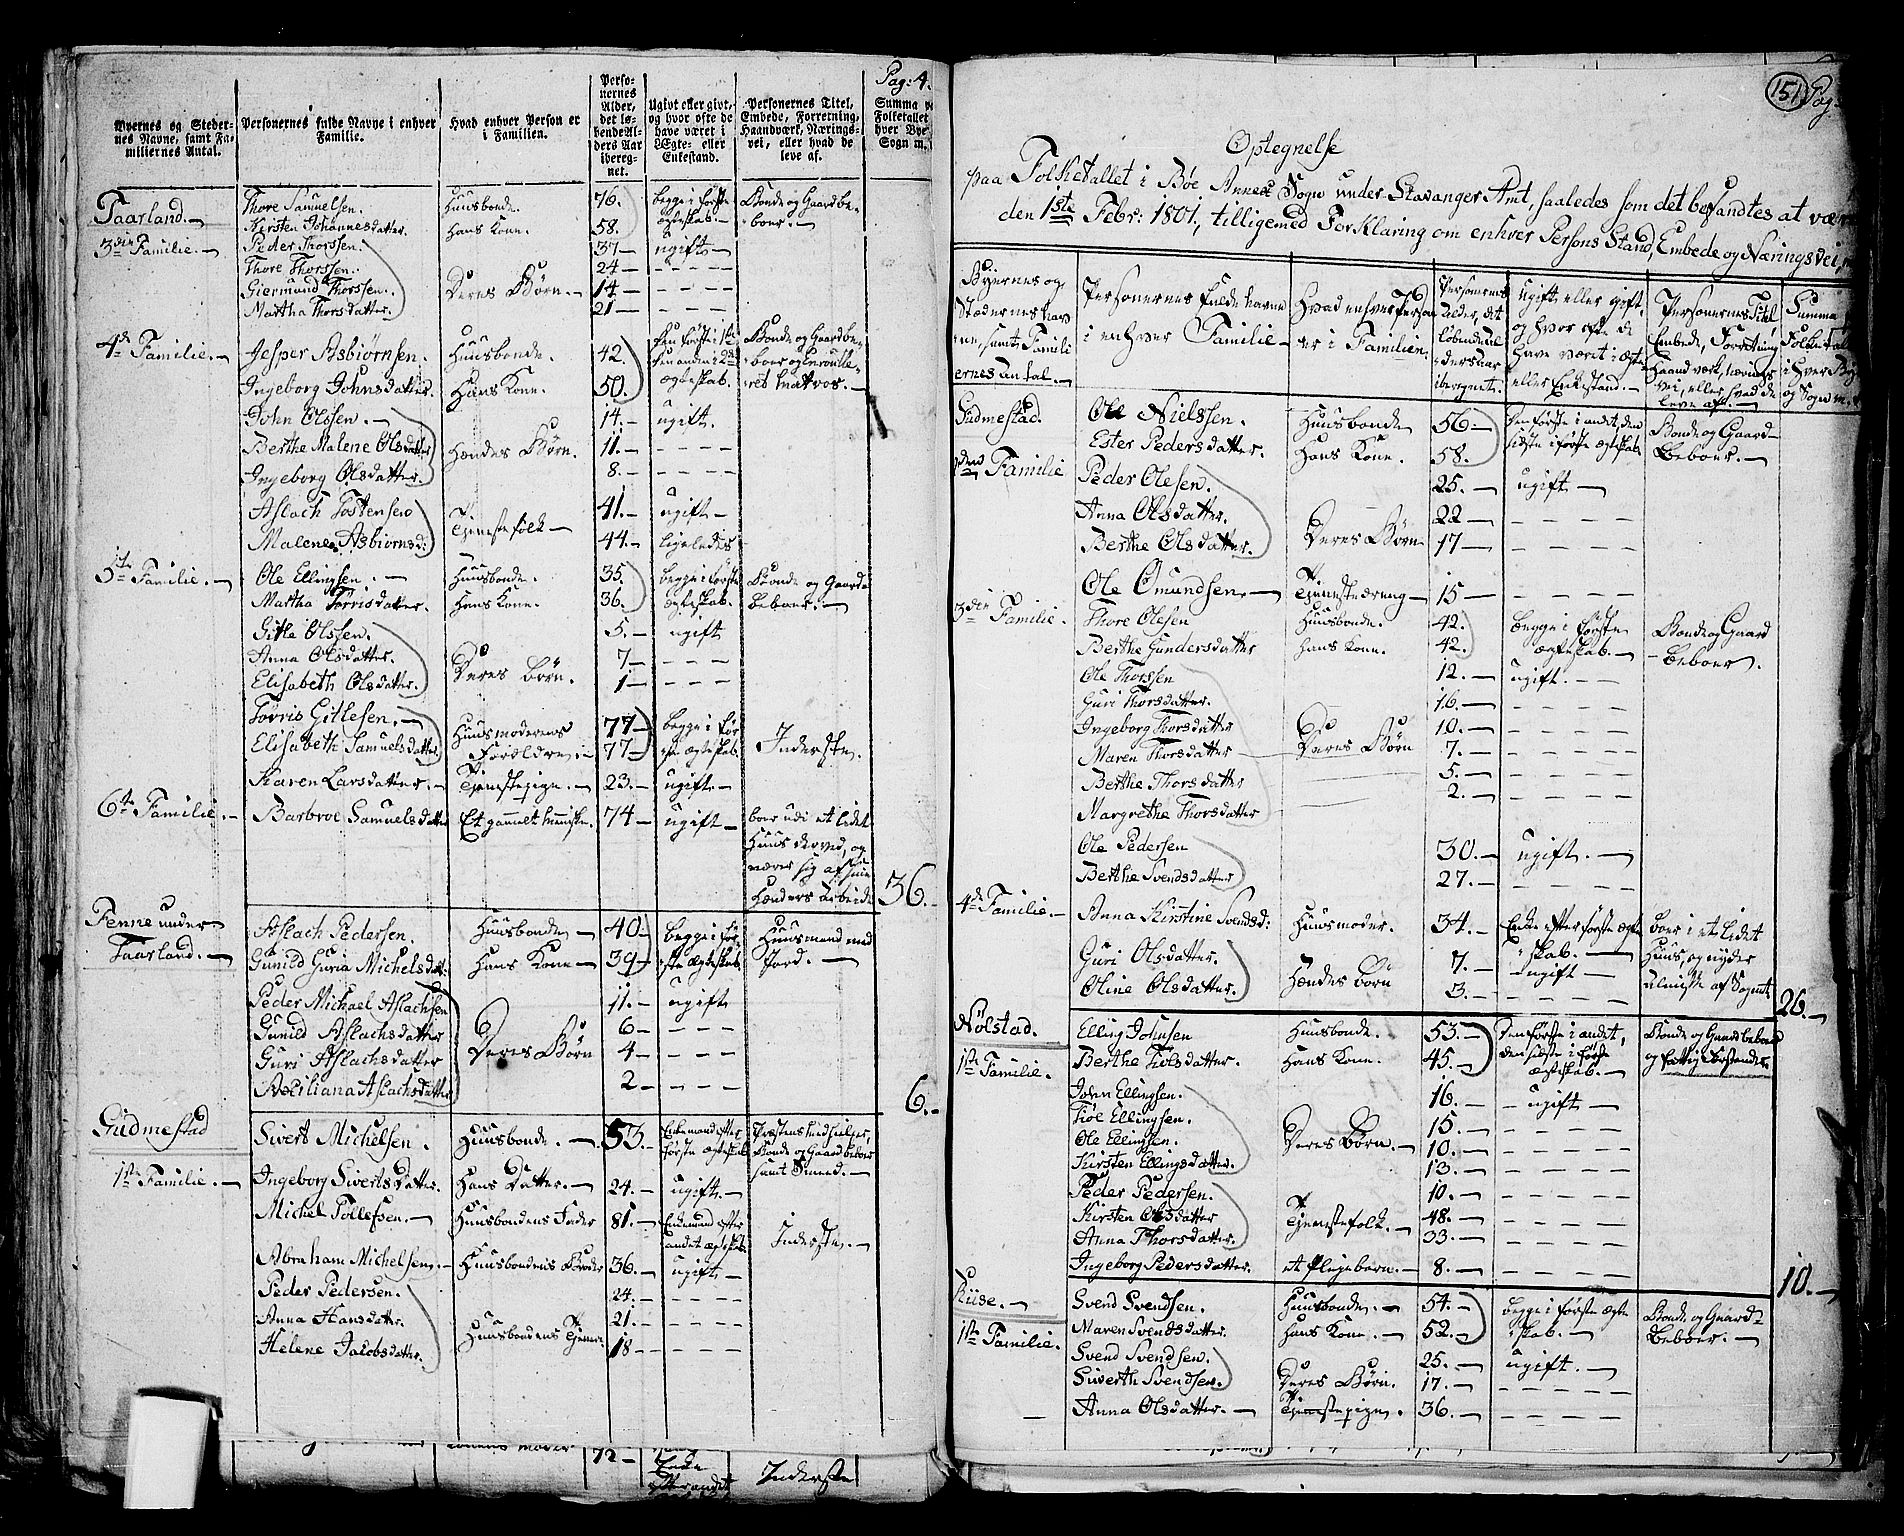 Pag: 4.
Byernes og Stedernes Navne, samt Familiernes Antal.
Personernes fulde Navne i enhver Familie.
Hvad enhver Person er i Familien.
Personernes Alder, det løbende Alders Aar iberegnet.
Ugivt eller givt, og hvor ofte de have været i Ægte- eller Enkestand.
Personernes Titel, Embede, Forretning, Haandværk, Næringsvei, eller hvad de leve af.
Summa Folketallet hver Bye Sogn
Taarland. Thore Samuelsen. Huusbonde. 76. begge i første Bonde og Gaardbe-
Kirsten Johannesdatter. Hans Kone. 58. ægteskab. boer.
3die Familie. Peder Thorssen. 37 ugift
Thore Thorssen. 24 - - - -
Giermund Thorssen. Deres Børn. 14 - - - -
Martha Thorsdatter. 21 - - - -
4de Familie. Jesper Asbiørnsen. Huusbonde. 42. Den første i 1ste Bonde og Gaardbe-
den anden i 2det boer og Enroulle-
Ingeborg Johnsdatter. Hans Kone. 50. ægteskab. ret Matros.
John Olssen. 14. ugift.
Berthe Malene Olsdatter Hændes Børn. 11. - - - -
Ingeborg Olsdatter. 8. - - - -
Aslach Tostensen 41. ugift
Malene Asbiørnsd: Tienestefolk 44. ligeledes
5te Familie. Ole Ellingsen. Huusbonde. 35. begge i første Bonde og Gaard-
Martha Torrisdatter. Hans Kone. 36. ægteskab. beboer.
Gitle Olssen. 5. ugift
Anna Olsdatter. Deres Børn. 7 - - -
Elisabeth Olsdatter. 1 - - -
Torris Gitlesen. Huusmoderens 77 begge i før-
Elisabeth Samuelsdatter Forældre 77 ste ægteskab. Inderste.
Karen Larsdatter. Tienestepige. 23. ugift.
6te Familie. Barbroe Samuelsdatter Et gammelt Menniske. 74 ugift boer udi et lidet
Huus derved, og
nærer sig af sine
Hænders Arbeide 36.
Tenne under Aslach Pedersen. Huusbonde 40 begge i før- Huusmand med
Taarland. Gunild Guria Michelsdatt: Hans Kone 39 ste Ægteskab. Jord.
Peder Michael Aslachsen 11. ugift
Gunild Aslachsdatter 6 - - -
Guri Aslachsdatter Deres Børn 4 - - -
Axiliana Aslachsdatter 2 - - - 6.
Gudmestad Sivert Michelsen. Huusbonde. 53. Enkemand efter Præstens Medhielper,
første Ægteskab Bonde og Gaardbeboer
1ste Familie. Ingeborg Sivertsdatter. Hans Datter. 24. ugift. samt Smeed.
Michel Tollefsen. Huusbondens Fader 81. Enkemand efter
andet ægteskab Inderste.
Abraham Michelsen. Huusbondens Broder 36. ugift
Peder Pedersen. 24. - - - -
Anna Hansdatter. 21. - - - -
Helene Jacobsdatter. Huusbondens Tienere 18 - - - -
72 Enke Inderste

151 Pag.
Optegnelse
paa Folketallet i Bøe Annex Sogn under Stavanger Amt, saaledes som det befandtes at være
den 1ste Febr: 1801, tilligemed Forklaring om enhver Persons Stand, Embede og Næringsvei,
Byernes og Stædernes Navne, samt Familiernes Antal.
Personernes fulde Navne i enhver Familie
Hvad enhver Person er i Familien.
Personernes Alder, det løbende Aldersaar iberegnet.
Ugift eller gift, og hvor ofte de have været i Ægte- eller Enkestand.
Personernes Titel Embede, Forretning Haandværk, Nærings-vei, eller hvad de leve af.
Summa Folketal i hver Bye og Sogn
Gudmestad. Ole Nielssen. Huusbonde 56. Den første i andet, den Bonde og Gaard-
Ester Pedersdatter. Hans Kone. 58. sidste i første ægteskab. beboer.
2den Familie Peder Olesen. 25. ugift
Anna Olsdatter. 22 - - - -
Berthe Olsdatter. Deres Børn 17 - - - -
Ole Omundsen. Tienestedreng 15 - - - -
3die Familie. Thore Olesen Huusbonde. 42. begge i første Bonde og Gaard
Berthe Gundersdatter Hans Kone. 42. ægteskab. beboer.
Ole Thorssen 12. ugift.
Guri Thorsdatter. 16. - - - -
Ingeborg Thorsdatter 10. - - - -
Maren Thorsdatter Deres Børn 7. - - - -
Berthe Thorsdatter 5. - - - -
Margrethe Thorsdatter 2. - - - -
Ole Pedersen 30. ugift.
Berthe Svendsdatter 27. - - - -
4de Familie. Anna Kirstine Svendsd: Huusmoder. 34. Enke efter første ægte- boer i et lidet
Guri Olsdatter. 7. skab. Huus, og nyder
ugift
Oline Olsdatter. Hændes Børn 3. - - - - Almisse af Sognet. 26.
Nølstad. Elling Johnsen Huusbonde. 53. Den første i andet, Bonde og Gaardbeboer
1ste Familie. Berthe Tiølsdatter. Hans Kone. 45. den sidste i første og Fattigforstander
ægteskab.
John Ellingsen. 16. ugift
Tiøe Ellingsen. 15. - - - -
Ole Ellingsen. Deres Børn. 10. - - - -
Kirsten Ellingsdatter. 13. - - - -
Peder Pedersen. 10. - - - -
Kirsten Olsdatter Tienestefolk. 48. - - - -
Anna Thorsdatter. 33. - - - -
Ingeborg Pedersdatter. et Pleiebarn. 8. - - - - 10.
Riise. Svend Svendsen. Huusbonde. 54. begge i første Ægte Bonde og Gaard-
1ste Familie. Maren Svendsdatter. Hans Kone. 52. skab. beboer.
Svend Svendsen. 25. ugift.
Siverth Svendsen. Deres Børn. 17. - - - -
Anna Olsdatter. Tienestepige. 36. - - - -